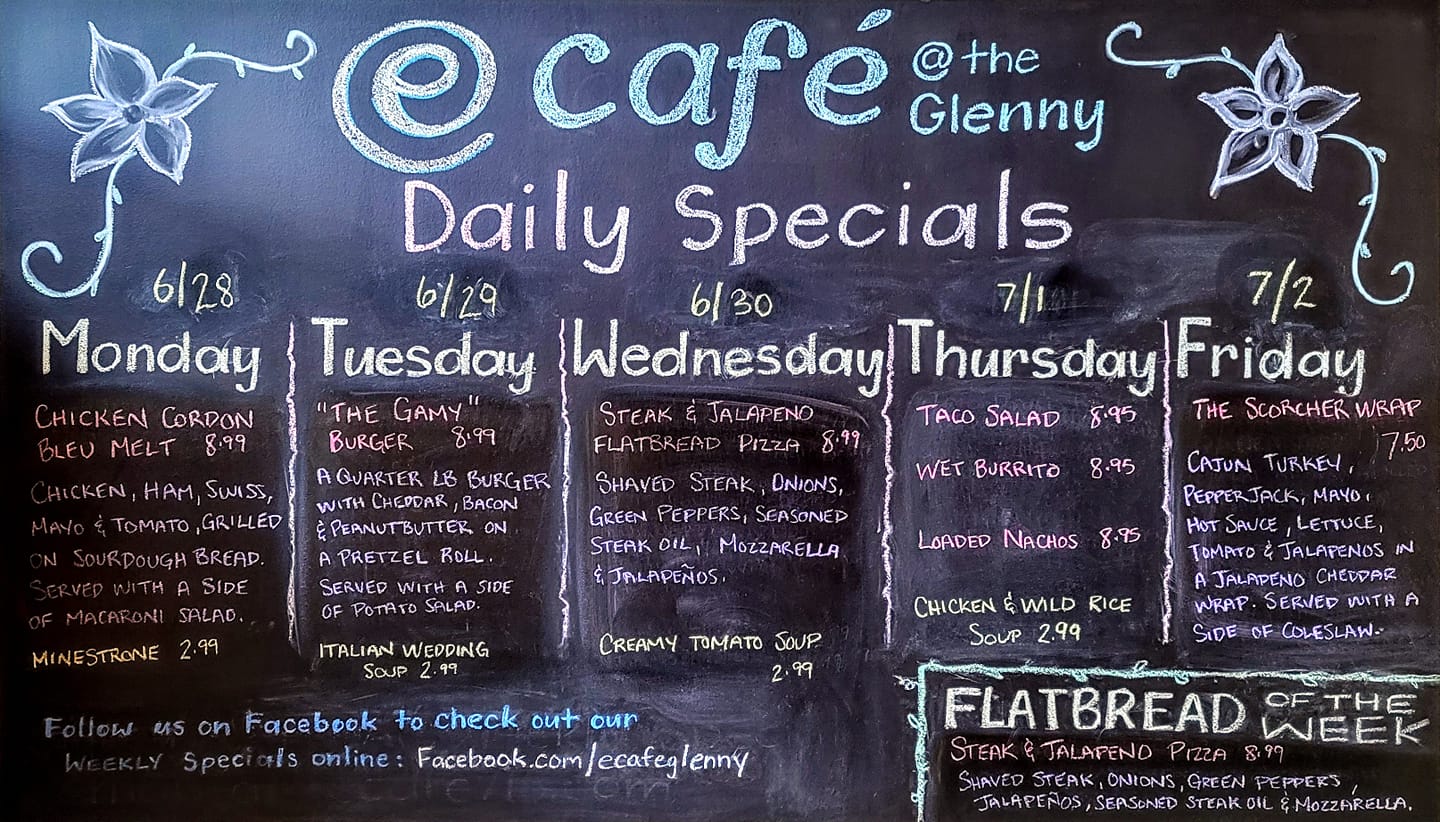 e café @ the
Glenny
Daily Specials
6/28
Monday
CHICKEN CORDON
BLEU MELT 8.99
CHICKEN, HAM, SWISS,
MAYO & TOMATO, GRILLED
ON SOURDOUGH BREAD.
SERVED WITH A SIDE
OF MACARONI SALAD.
MINESTRONE 2.99
6/29
Tuesday
"THE GAMY"
BURGER 8.99
A QUARTER LB BURGER
WITH CHEDDAR, BACON
& PEANUTBUTTER ON
A PRETZEL ROLL.
SERVED WITH A SIDE
OF POTATO SALAD.
ITALIAN WEDDING
SOUP 2.99
6/30
Wednesday
STEAK & JALAPENO
FLATBREAD PIZZA 8.99
SHAVED STEAK, ONIONS,
GREEN PEPPERS, SEASONED
STEAK OIL, MOZZARELLA
& JALAPEÑOS.
CREAMY TOMATO SOUP
2.99
7/1
Thursday
TACO SALAD 8.95
WET BURRITO 8.95
LOADED NACHOS 8.95
CHICKEN & WILD RICE
SOUP 2.99
7/2
Friday
THE SCORCHER WRAP
7.50
CAJUN TURKEY,
PEPPERJACK, MAYO,
HOT SAUCE, LETTUCE,
TOMATO & JALAPENOS IN
A JALAPENO CHEDDAR
WRAP. SERVED WITH A
SIDE OF COLESLAW.
Follow us on Facebook to check out our
WEEKLY Specials online: Facebook.com/ecafeglenny
FLATBREAD OF THE
WEEK
STEAK & JALAPENO PIZZA 8.99
SHAVED STEAK, ONIONS, GREEN PEPPERS,
JALAPEÑOS, SEASONED STEAK OIL & MOZZARELLA.